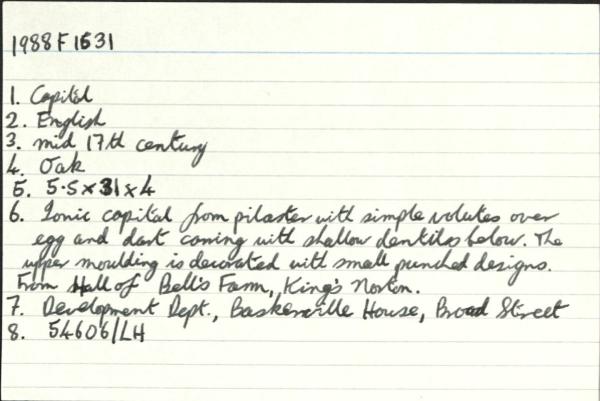 1988 F 1631
1. Capital
2. English
3. mid 17th century
4. Oak
5. 5.5 x 31 x 4
6. Ionic capital from pilaster with simple volutes over
egg and dart carving with shallow dentilos below. The
upper moulding is decorated with small punched designs.
From Hall of Bell's Farm, King's Norton.
7. Development Dept., Baskerville House, Broad Street
8. 54606/LH